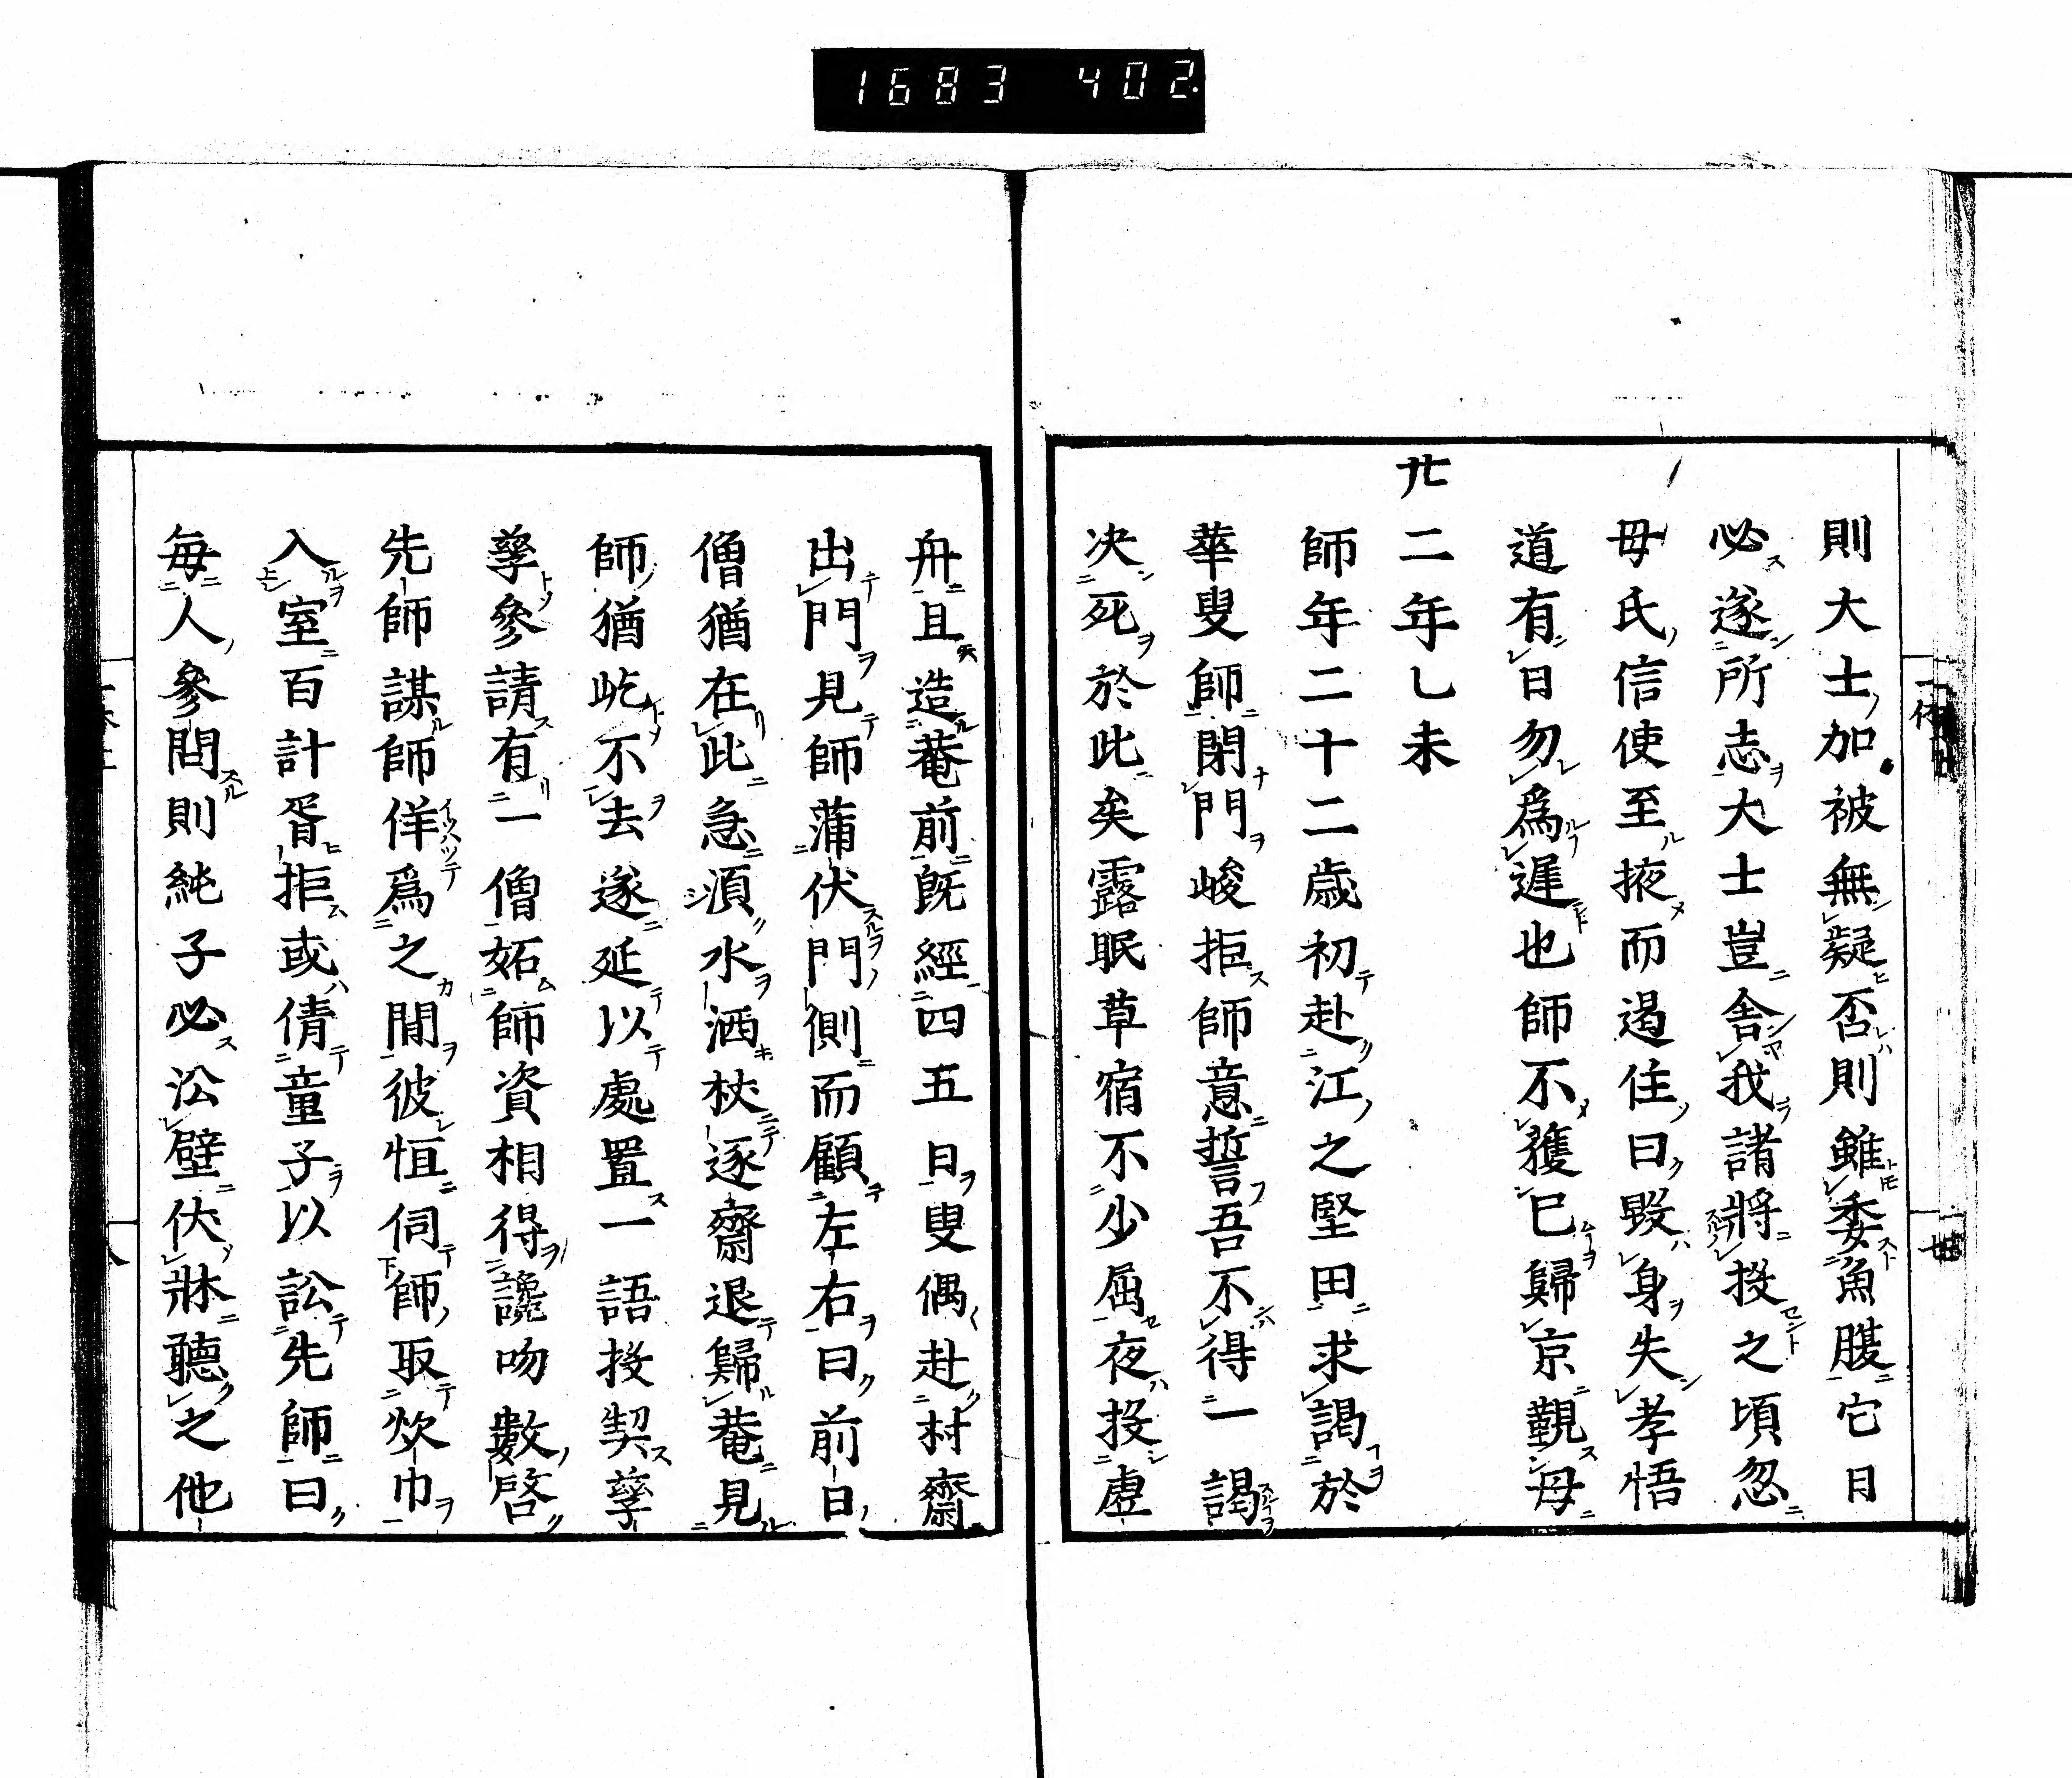 1683 402
則大士加被無疑否則雖委魚腹它日
必遂所志大士豈舎我諸將投之頃忽
母氏信使至掖而遏住曰毀身失孝悟
道有日勿爲遲也師不獲已歸京覲母
卅二年乚未
師年二十二歳初赴江之堅田求謁於
華叟師閉門峻拒師意誓吾不得一謁
决死於此矣露眠草宿不少屈夜投虚
舟且造菴前既經四五日叟偶赴村齋
出門見師蒲伏門側而顧左右曰前日
僧猶在此急湏水洒杖逐齋退歸菴見
師猶屹不去遂延以處置一語投契孳
孳參請有一僧妬師資相得讒吻數啓
先師謀師佯爲之間彼恒伺師取炊巾
入室百計胥拒或倩童子以訟先師曰
毎人參問則純子必㳂壁伏牀聽之他